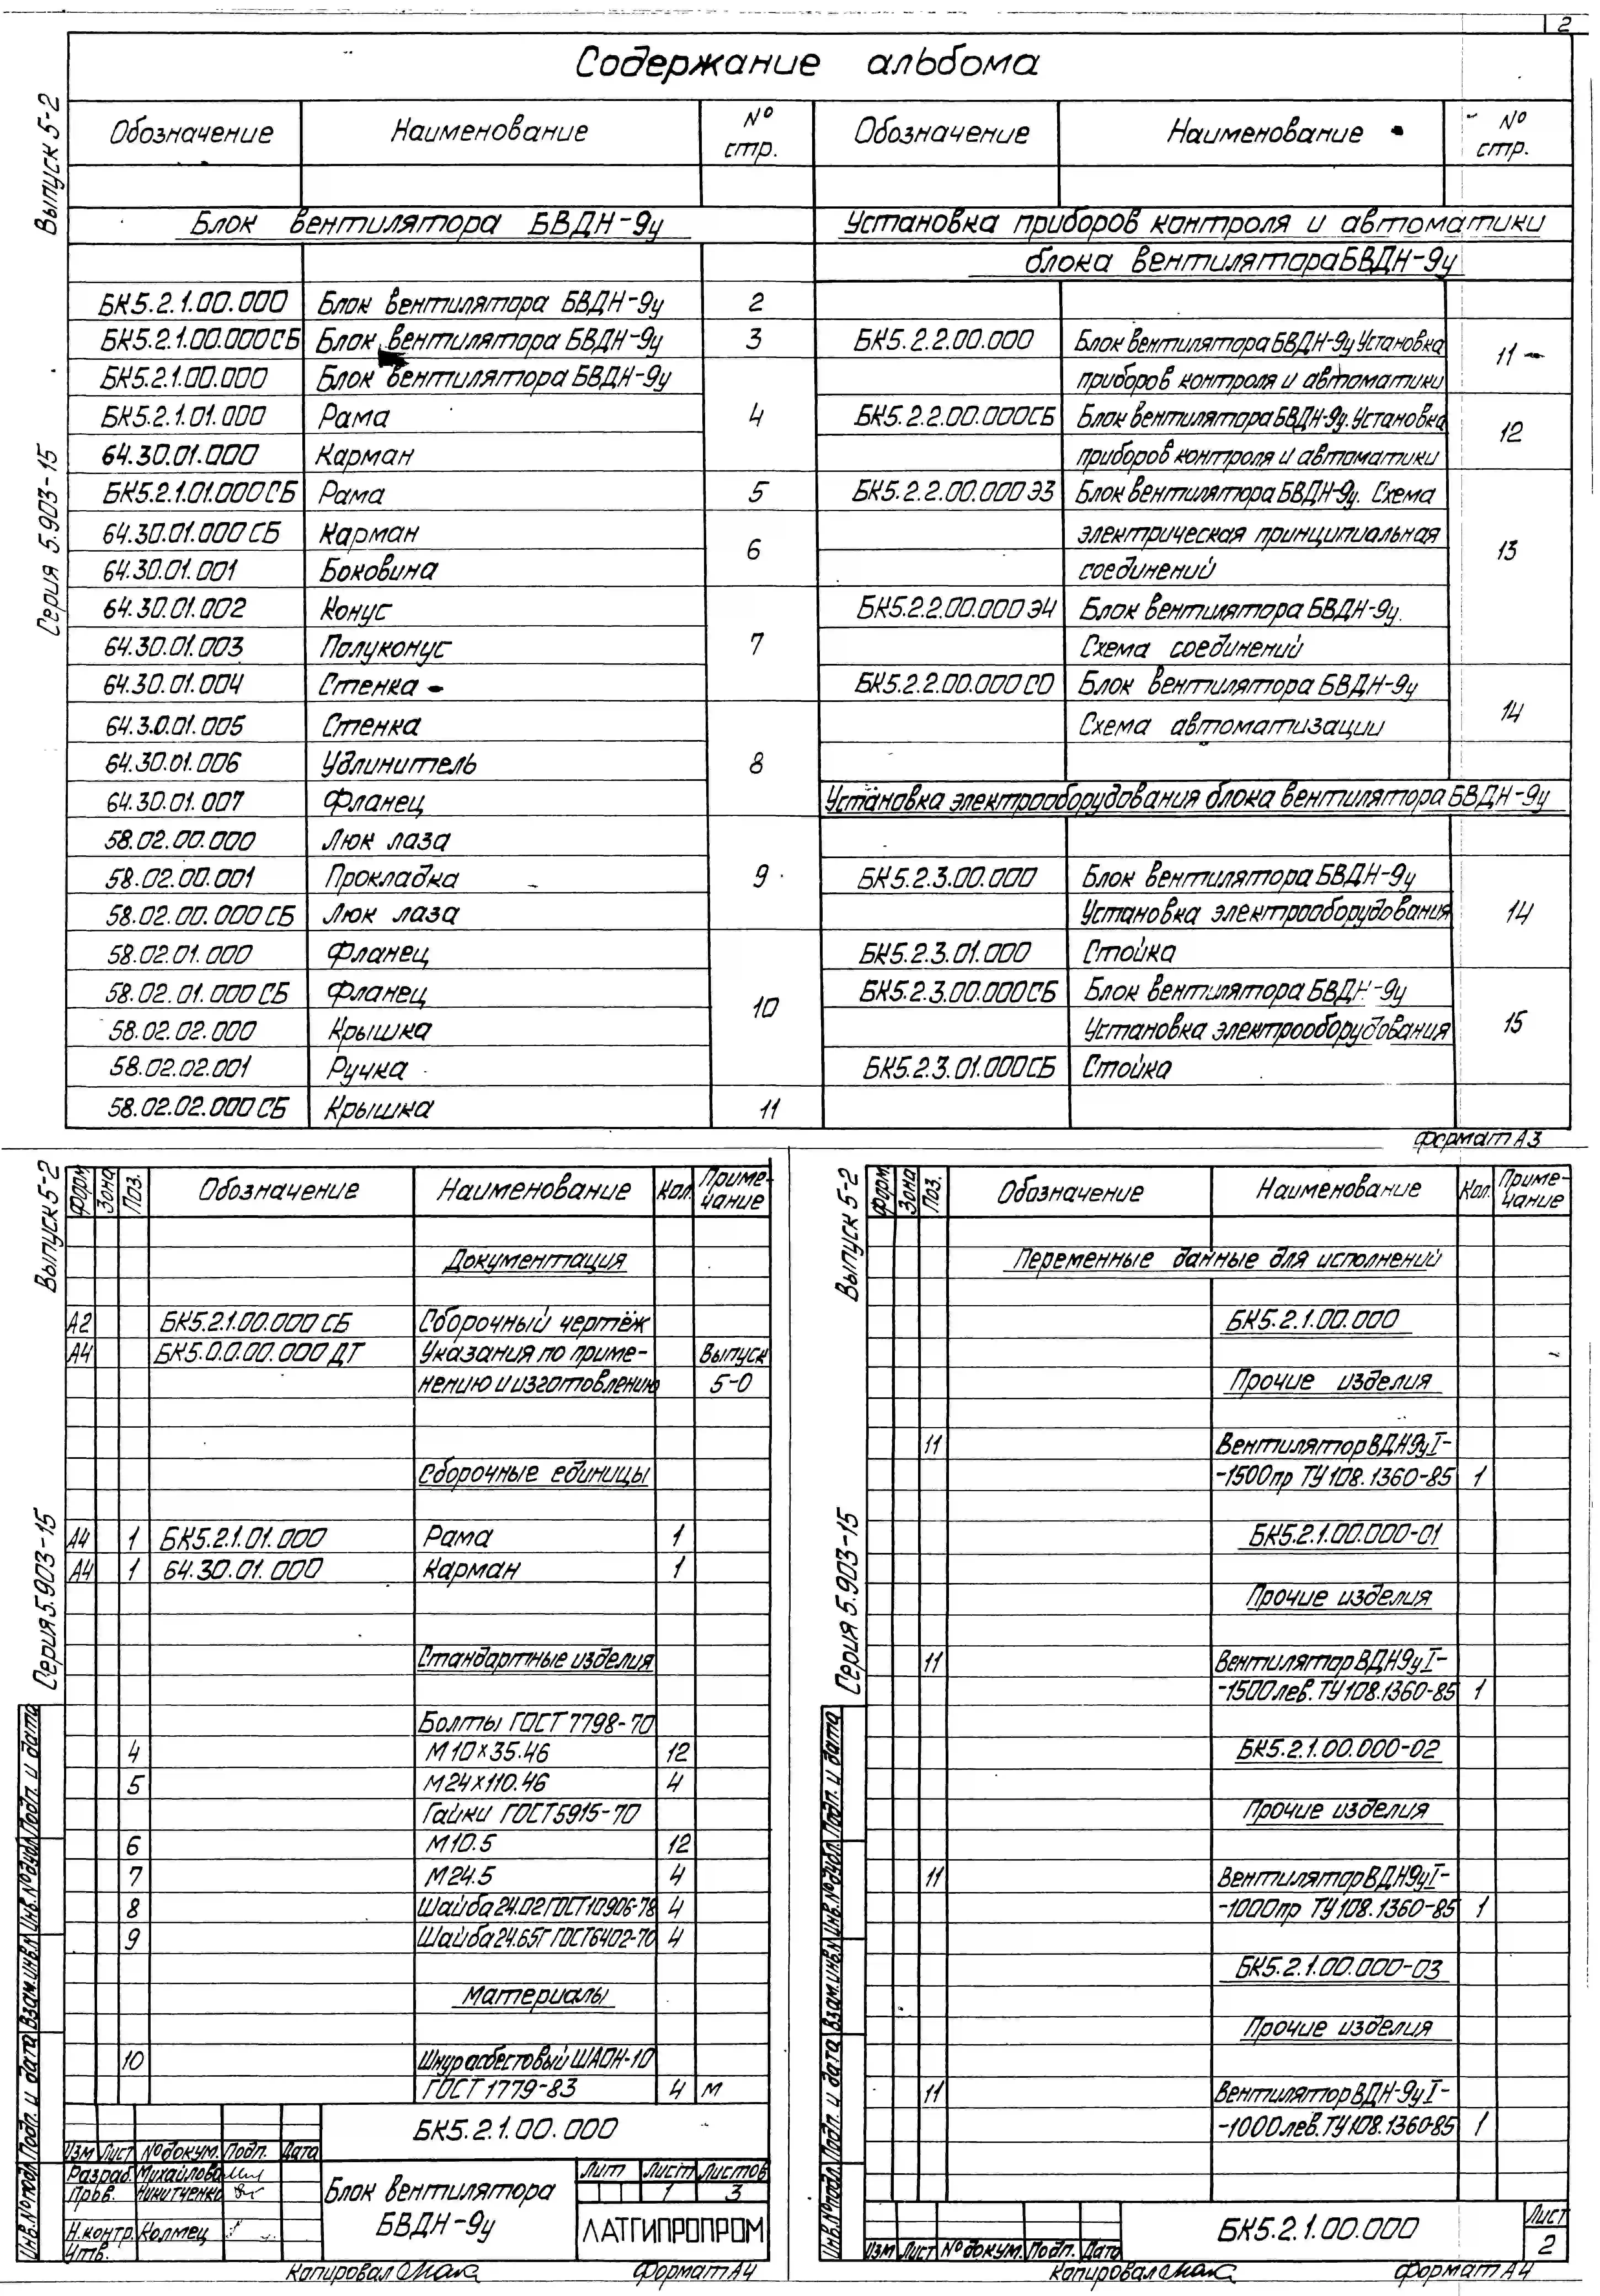 2
Содержание альбома
Выпуск 5-2
Серия 5.903-15
Обозначение Наименование № стр. Обозначение Наименование № стр.
Блок вентилятора БВДН-9у
БК5.2.1.00.000 Блок вентилятора БВДН-9у 2
БК5.2.1.00.000СБ Блок вентилятора БВДН-9у 3
БК5.2.1.00.000 Блок вентилятора БВДН-9у
БК5.2.1.01.000 Рама 4
64.30.01.000 Карман
БК5.2.1.01.000СБ Рама 5
64.30.01.000СБ Карман 6
64.30.01.001 Боковина
64.30.01.002 Конус
64.30.01.003 Полуконус 7
64.30.01.004 Стенка
64.30.01.005 Стенка
64.30.01.006 Удлинитель 8
64.30.01.007 Фланец
58.02.00.000 Люк лаза
58.02.00.001 Прокладка 9
58.02.00.000СБ Люк лаза
58.02.01.000 Фланец
58.02.01.000СБ Фланец 10
58.02.02.000 Крышка
58.02.02.001 Ручка
58.02.02.000СБ Крышка 11
Установка приборов контроля и автоматики
блока вентилятора БВДН-9у
БК5.2.2.00.000 Блок вентилятора БВДН-9у Установка 11
приборов контроля и автоматики
БК5.2.2.00.000СБ Блок вентилятора БВДН-9у. Установка 12
приборов контроля и автоматики
БК5.2.2.00.000Э3 Блок вентилятора БВДН-9у. Схема
электрическая принципиальная 13
соединений
БК5.2.2.00.000Э4 Блок вентилятора БВДН-9у.
Схема соединений
БК5.2.2.00.000СО Блок вентилятора БВДН-9у 14
Схема автоматизации
Установка электрооборудования блока вентилятора БВДН-9у
БК5.2.3.00.000 Блок вентилятора БВДН-9у
Установка электрооборудования 14
БК5.2.3.01.000 Стойка
БК5.2.3.00.000СБ Блок вентилятора БВДН-9у
Установка электрооборудования 15
БК5.2.3.01.000СБ Стойка
Формат А3
Выпуск 5-2
Серия 5.903-15
Форм. Зона Поз. Обозначение Наименование Кол. Примечание
Документация
А2 БК5.2.1.00.000СБ Сборочный чертёж
А4 БК5.0.0.00.000ДТ Указания по приме- Выпуск
нению и изготовлению 5-0
Сборочные единицы
А4 1 БК5.2.1.01.000 Рама 1
А4 1 64.30.01.000 Карман 1
Стандартные изделия
Болты ГОСТ 7798-70
4 М10×35.46 12
5 М24×110.46 4
Гайки ГОСТ5915-70
6 М10.5 12
7 М24.5 4
8 Шайба 24.02 ГОСТ10906-78 4
9 Шайба 24.65Г ГОСТ6402-70 4
Материалы
10 Шнур асбестовый ШАОН-10
ГОСТ 1779-83 4 м
БК5.2.1.00.000
Изм Лист № докум. Подп. Дата
Разраб. Михайлова
Пров. Никитченко
Н.контр. Колмец
Утв.
Блок вентилятора
БВДН-9у
Лит Лист Листов
1 3
ЛАТГИПРОПРОМ
Копировал Формат А4
Инв.№ подл. Подп. и дата Взам.инв.№ Инв.№ дубл. Подп. и дата
Выпуск 5-2
Серия 5.903-15
Форм. Зона Поз. Обозначение Наименование Кол. Примечание
Переменные данные для исполнений
БК5.2.1.00.000
Прочие изделия
11 Вентилятор ВДН9уI-
-1500пр ТУ108.1360-85 1
БК5.2.1.00.000-01
Прочие изделия
11 Вентилятор ВДН9уI-
-1500лев. ТУ108.1360-85 1
БК5.2.1.00.000-02
Прочие изделия
11 Вентилятор ВДН9уI-
-1000пр ТУ108.1360-85 1
БК5.2.1.00.000-03
Прочие изделия
11 Вентилятор ВДН-9уI-
-1000лев. ТУ108.1360-85 1
БК5.2.1.00.000
Лист
2
Изм Лист № докум. Подп. Дата
Копировал Формат А4
Инв.№ подл. Подп. и дата Взам.инв.№ Инв.№ дубл. Подп. и дата